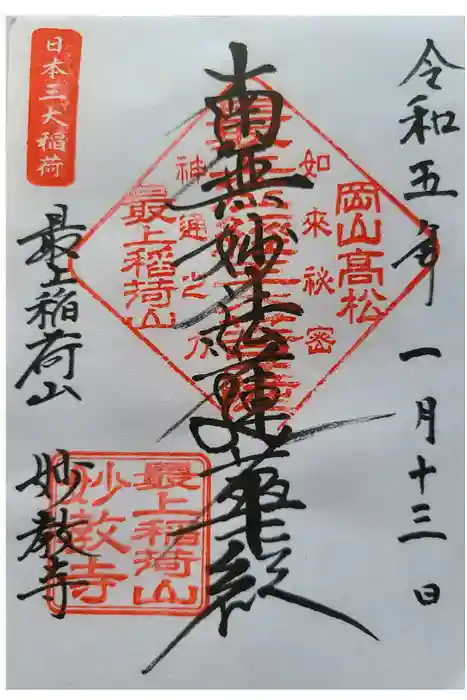 令和五年一月十三日
岡山高松
如来祕密
南無妙法蓮華経
神通之力
最上稲荷山
日本三大稲荷
最上稲荷山
妙教寺
最上稲荷山
妙教寺